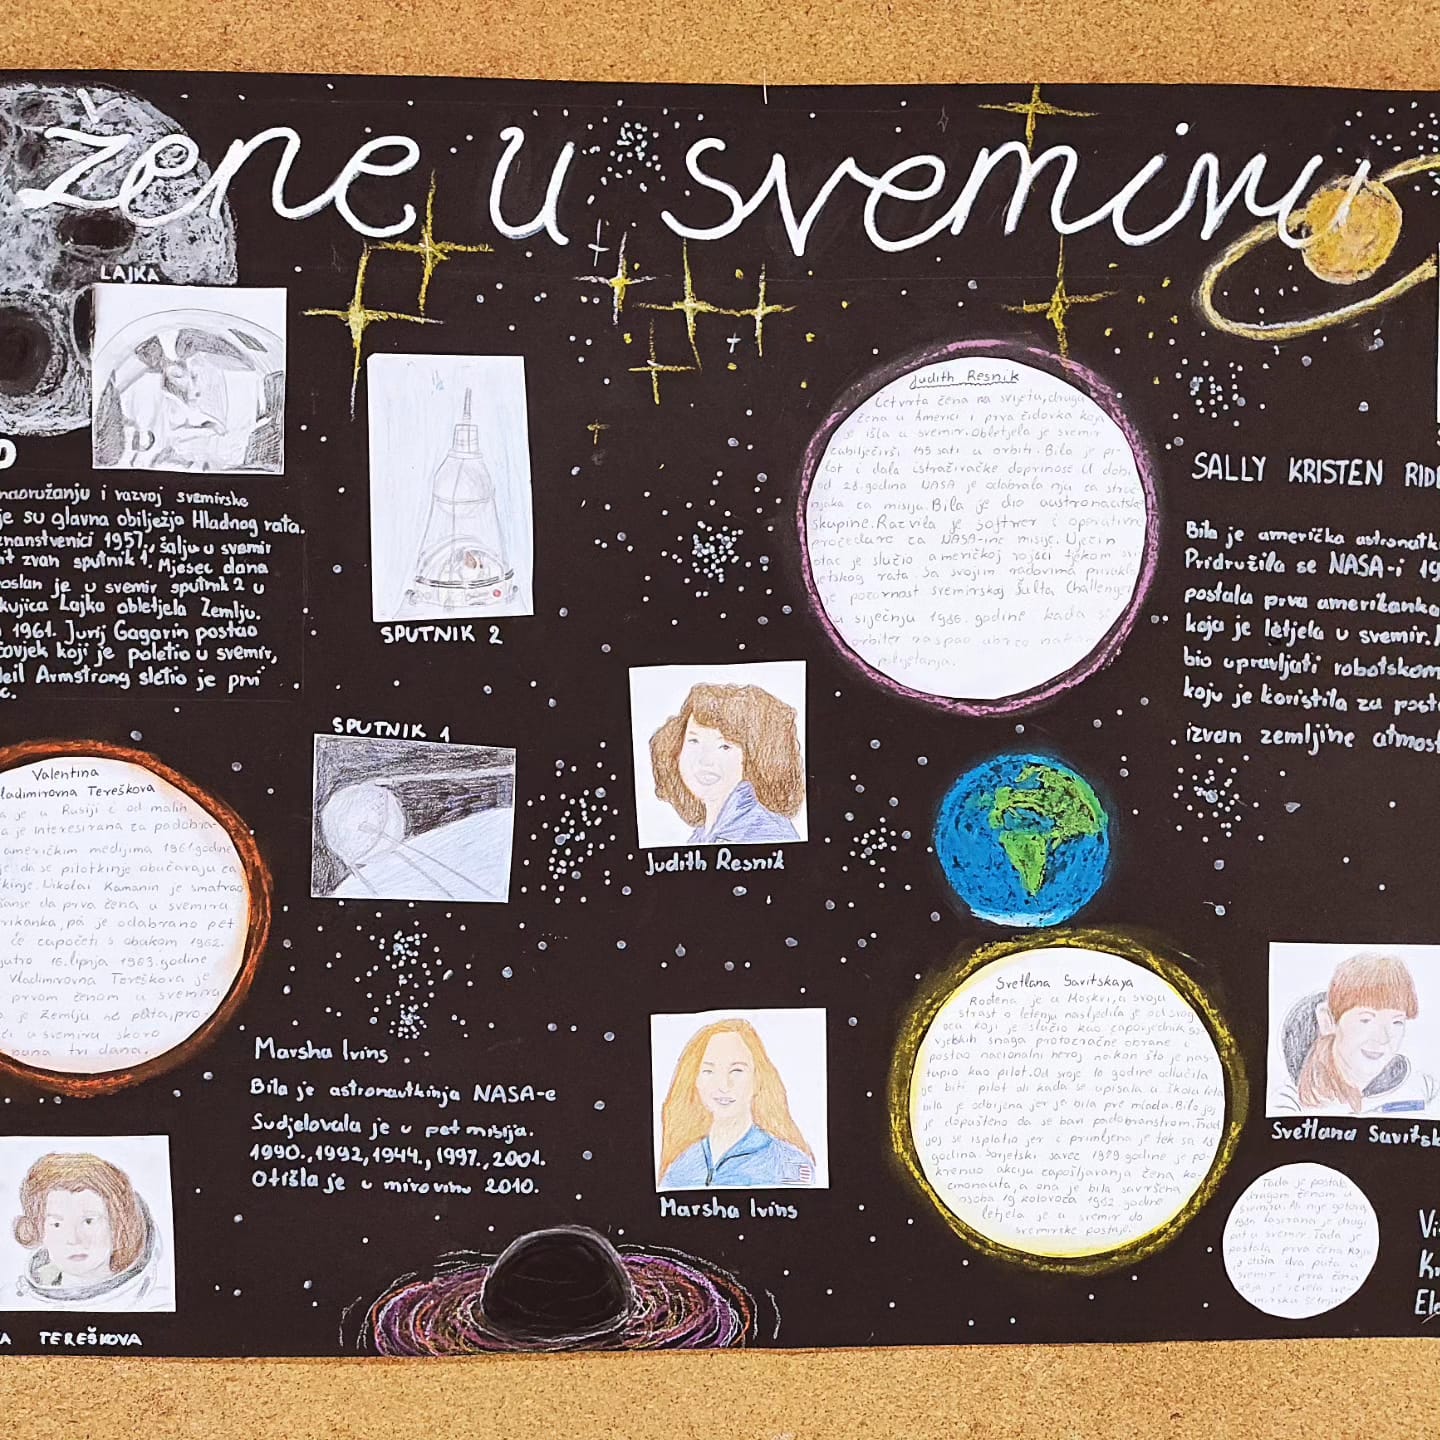 žene u svemiru
LAJKA
naoružanju i razvoj svemirske
je su glavna obilježja Hladnog rata.
znanstvenici 1957., šalju u svemir
zvan sputnik 1. Mjesec dana
poslan je u svemir sputnik 2 u
kujica Lajka obletjela Zemlju.
1961. Jurij Gagarin postao
čovjek koji je poletio u svemir,
Neil Armstrong sletio je prvi
SPUTNIK 2
SPUTNIK 1
Valentina
Vladimirovna Tereškova
je u Rusiji i od malih
je interesirana za padobra-
američkim medijima 1961. godine
da se pilotkinje obučavaju za
Nikolai Kamanin je smatrao
da prva žena u svemiru
pa je odabrano pet
će započeti s obukom 1962.
jutro 16. lipnja 1963. godine
Vladimirovna Tereškova je
prvom ženom u svemiru
je Zemlju ne pleta, pro-
u svemiru skoro
puna tri dana.
TEREŠKOVA
Marsha Ivins
Bila je astronautkinja NASA-e
Sudjelovala je u pet misija.
1990., 1992, 1944., 1997., 2001.
Otišla je u mirovinu 2010.
Judith Resnik
Četvrta žena na svijetu, druga
žena u Americi i prva židovka koja
je išla u svemir. Obletjela je svemir
zabilježivši 145 sati u orbiti. Bila je pi-
lot i dala istraživačke doprinose. U dobi
od 28. godina NASA je odabrala nju za struč
njaka za misiju. Bila je dio austronautske
skupine. Razvila je softver i operativne
procedure za NASA-ine misije. Njezin
otac je služio američkoj vojsci tijekom svi
jetskog rata. Sa svojim radovima privukla
je pozornost svemirskog šatla Challenger
u siječnju 1986. godine kada se
orbiter raspao ubrzo nakon
polijetanja.
Judith Resnik
Marsha Ivins
SALLY KRISTEN RIDE
Bila je američka astronautk
Pridružila se NASA-i 19
postala prva amerikanka
koja je letjela u svemir.
bio upravljati robotskom
koju je koristila za posta
izvan zemljine atmosf
Svetlana Savitskaya
Rođena je u Moskvi, a svoju
strast o letenju nasljedila je od svog
oca koji je služio kao zapovjednik so-
vjetskih snaga protuzračne obrane i
postao nacionalni heroj nakon što je nas-
tupio kao pilot. Od svoje 16 godine odlučila
je biti pilot ali kada se upisala u školu leta
bila je odbijena jer je bila pre mlada. Bilo joj
je dopušteno da se bavi padobranstvom. Trud
joj se isplatio jer i primljena je tek sa 18
godina. Sovjetski savez 1979 godine je po-
krenuo akciju zapošljavanja žena ko-
smonauta, a ona je bila savršena
osoba 19 kolovoza 1982 godine
letjela je u svemir do
svemirske postaje.
Svetlana Savitsk
Tada je postala
drugom ženom u
svemiru. Ali nije gotovo
1984. lasirana je drugi
put u svemir. Tada je
postala prva žena koja
je otišla dva puta u
svemir i prva žena
koja je izvela sve-
mirsku šetnju.